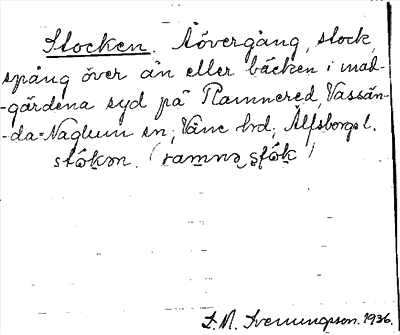 Stocken. Åövergång, stock,
spång över ån eller bäcken i mad-
-gärdena syd på Ramnered, Vassän-
-da-Naglum sn, Väne hrd, Älfsborgs l.
ståkən. (ramnə ståk)
1936.